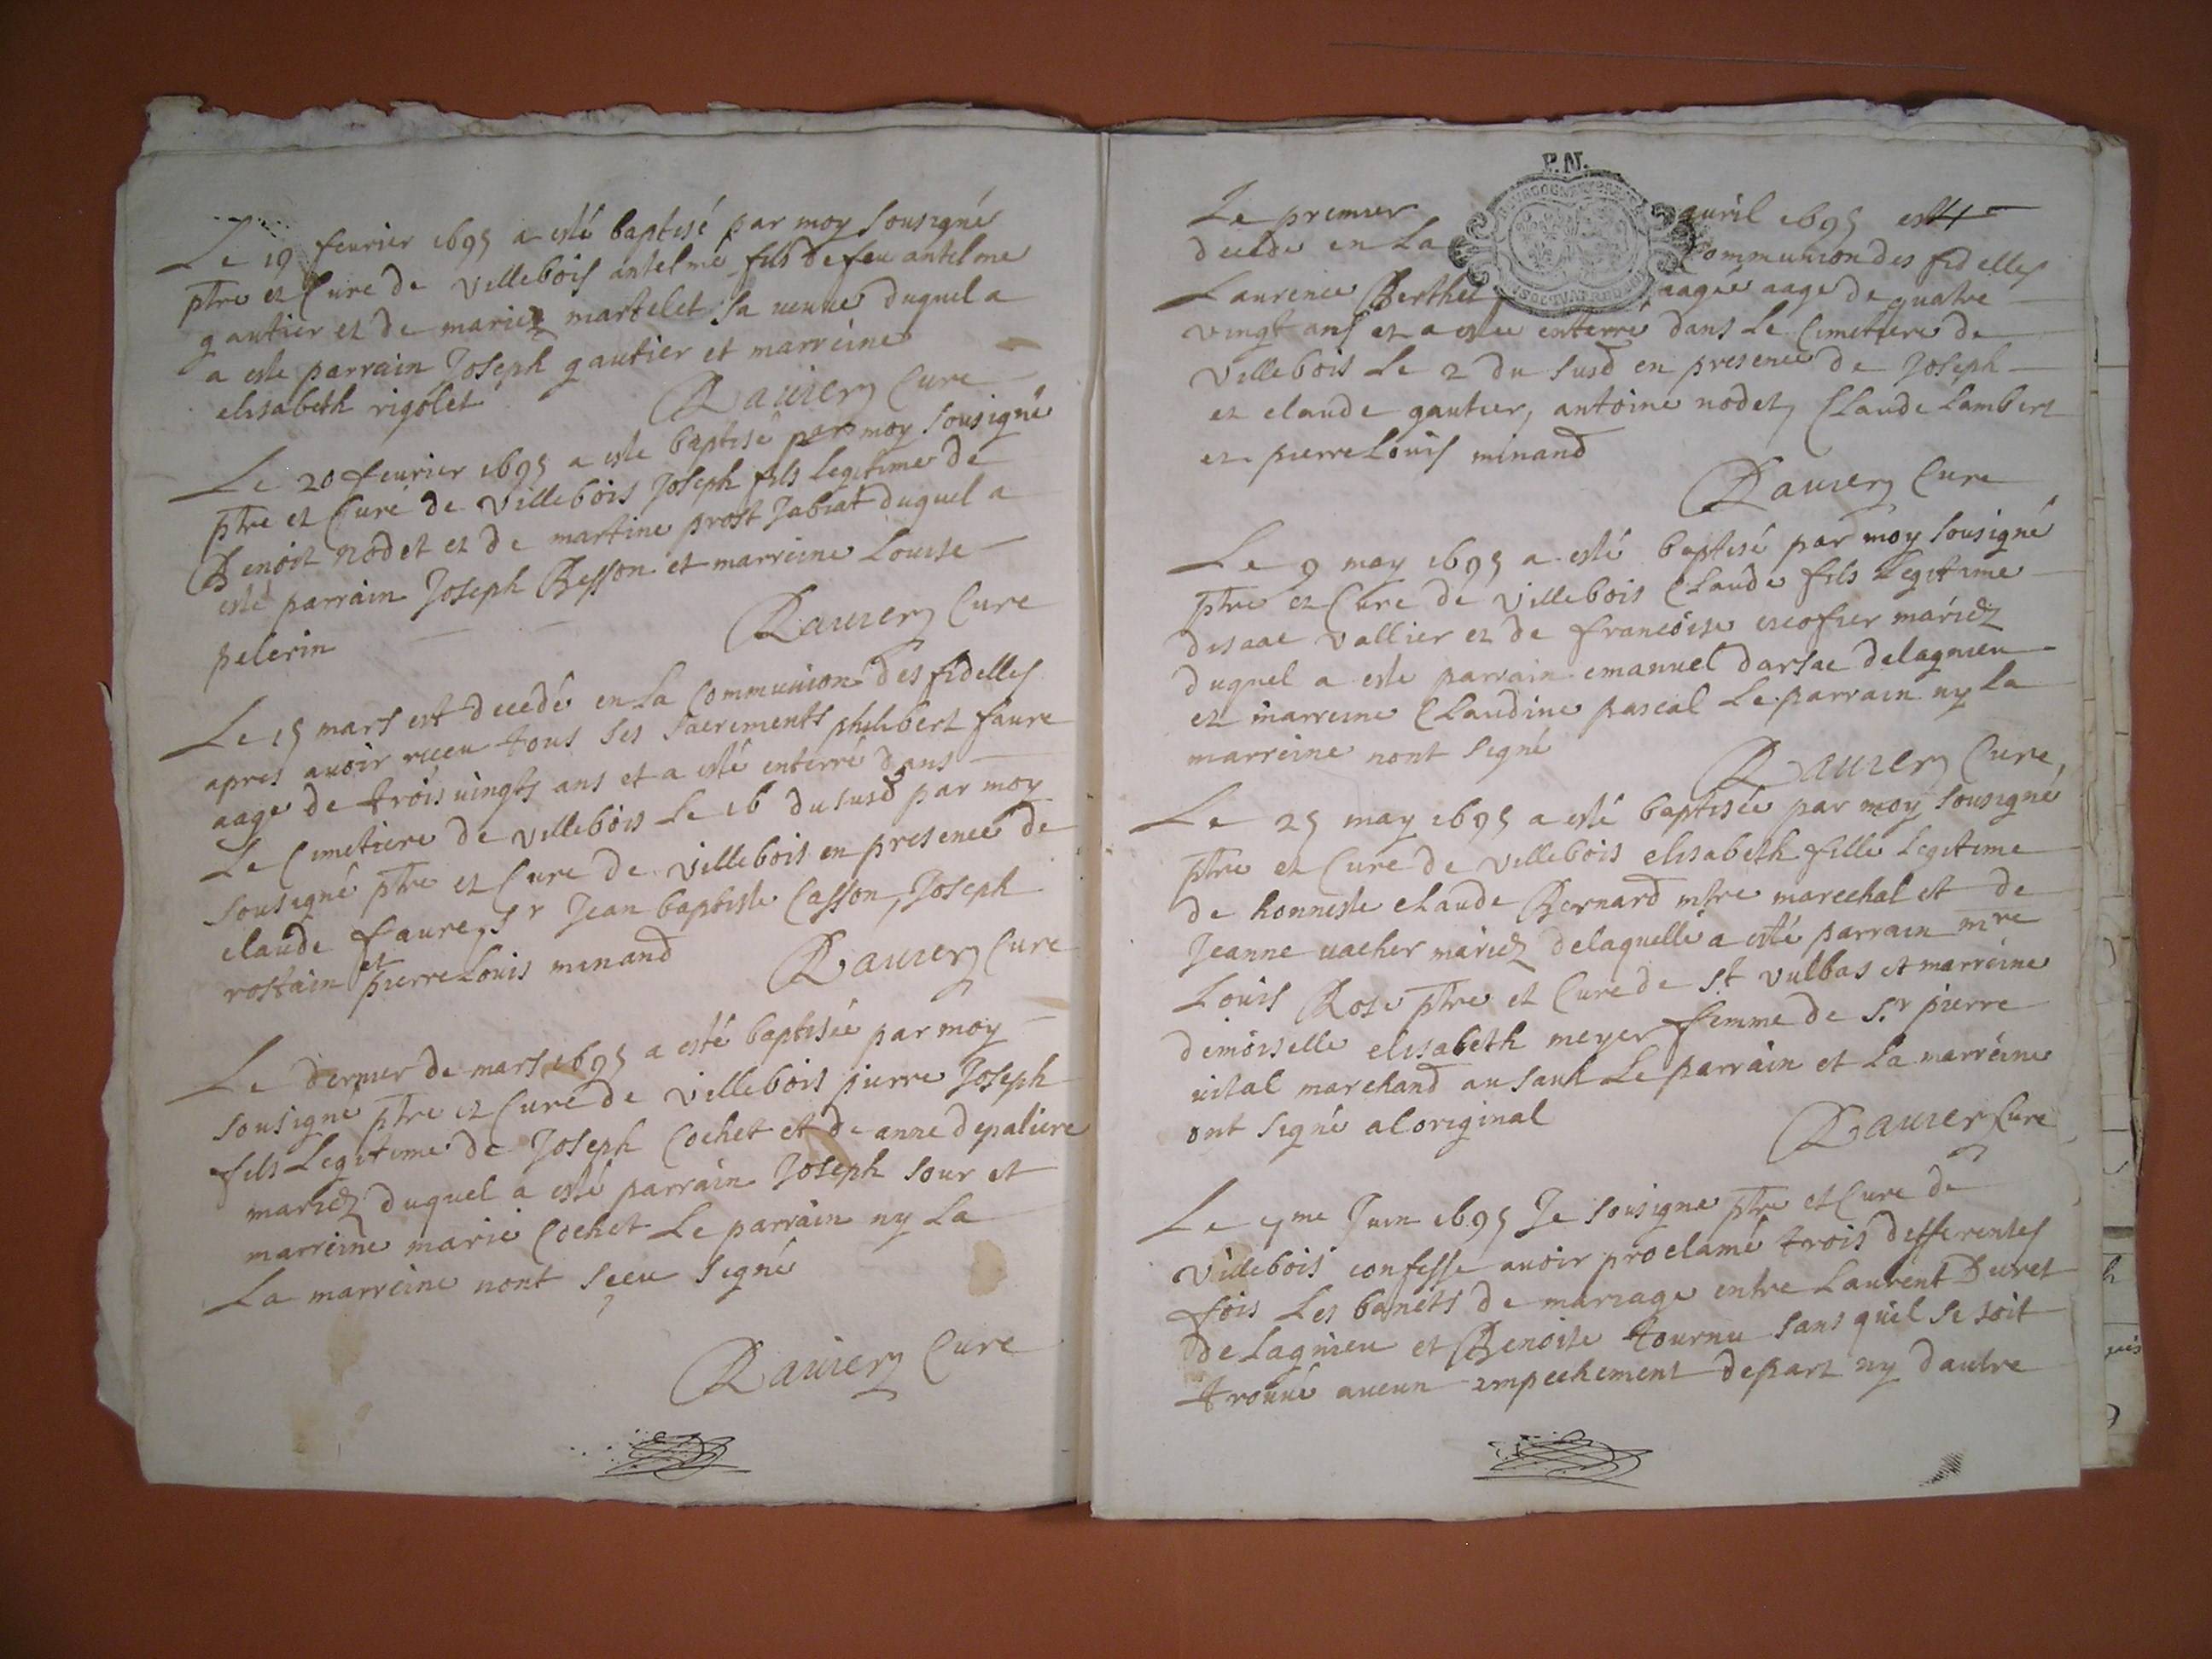 Le 19 feurier 1695 a esté baptisé par moy sousigné
ptre et Curé de Villebois antelme fils de feu antelme
gautier et de mariez martelet sa veuue duquel a
a este parrain Joseph gautier et marreine
elisabeth rigolet
Rauier Cure
Le 20 feurier 1695 a este baptisé par moy sousigné
ptre et Curé de Villebois Joseph fils legitime de
Benoit nodet et de martine prost Jabiat duquel a
esté parrain Joseph Besson et marreine Louise
pelerin
Rauier Cure
Le 15 mars est decedé en la Communion des fidelles
apres auoir receu tous ses sacrements philibert faure
aage de trois uingts ans et a esté enterré dans
Le Cimetiere de Villebois le 16 du susd par moy
sousigné ptre et Cure de Villebois en presence de
claude faure, Sr Jean baptiste Casson, Joseph
rostain et pierre Louis minand
Rauier Cure
Le dernier de mars 1695 a esté baptisée par moy
sousigné ptre et Curé de Villebois pierre Joseph
fils Legitime de Joseph Cochet et de anne depaliere
mariez duquel a esté parrain Joseph sour et
marreine marie Cochet Le parrain ny La
La marreine nont sceu signé
Rauier Cure
P.N.
Le premier auril 1695 est
decede en La Communion des fidelles
Laurence Berthet aagée aage de quatre
vingt ans et a estee enterré dans Le Cimetiere de
Villebois Le 2 du susd en presence de Joseph
et claude gautier, antoine nodet, Claude Lambert
et pierre Louis minand
Rauier Cure
Le 9 may 1695 a esté baptisé par moy sousigné
ptre et Cure de Villebois Claude fils Legitime
disaac Vallier et de francoise escofier mariez
duquel a este parrain emanuel darsac delagnieu
et marreine Claudine pascal Le parrain ny La
marreine nont signé
Rauier Cure,
Le 25 may 1695 a esté baptisée par moy sousigné
ptre et Cure de Villebois elisabeth fille Legitime
de honneste claude Bernard mtre marechal et de
Jeanne uacher mariez delaquelle a esté parrain mre
Louis Rose ptre et Cure de St Vulbas et marreine
demoiselle elisabeth meyer femme de Sr pierre
uital marchand au sault Le parrain et La marreine
ont signé aloriginal
Rauier Cure
Le me Juin 1695 Je sousigne ptre et Cure de
Villebois confesse auoir proclamé trois differentes
fois Les de mariage entre Laurent Duret
de Lagnieu et Benoite tournu sans quil se soit
trouué aucun empechement depart ny dautre